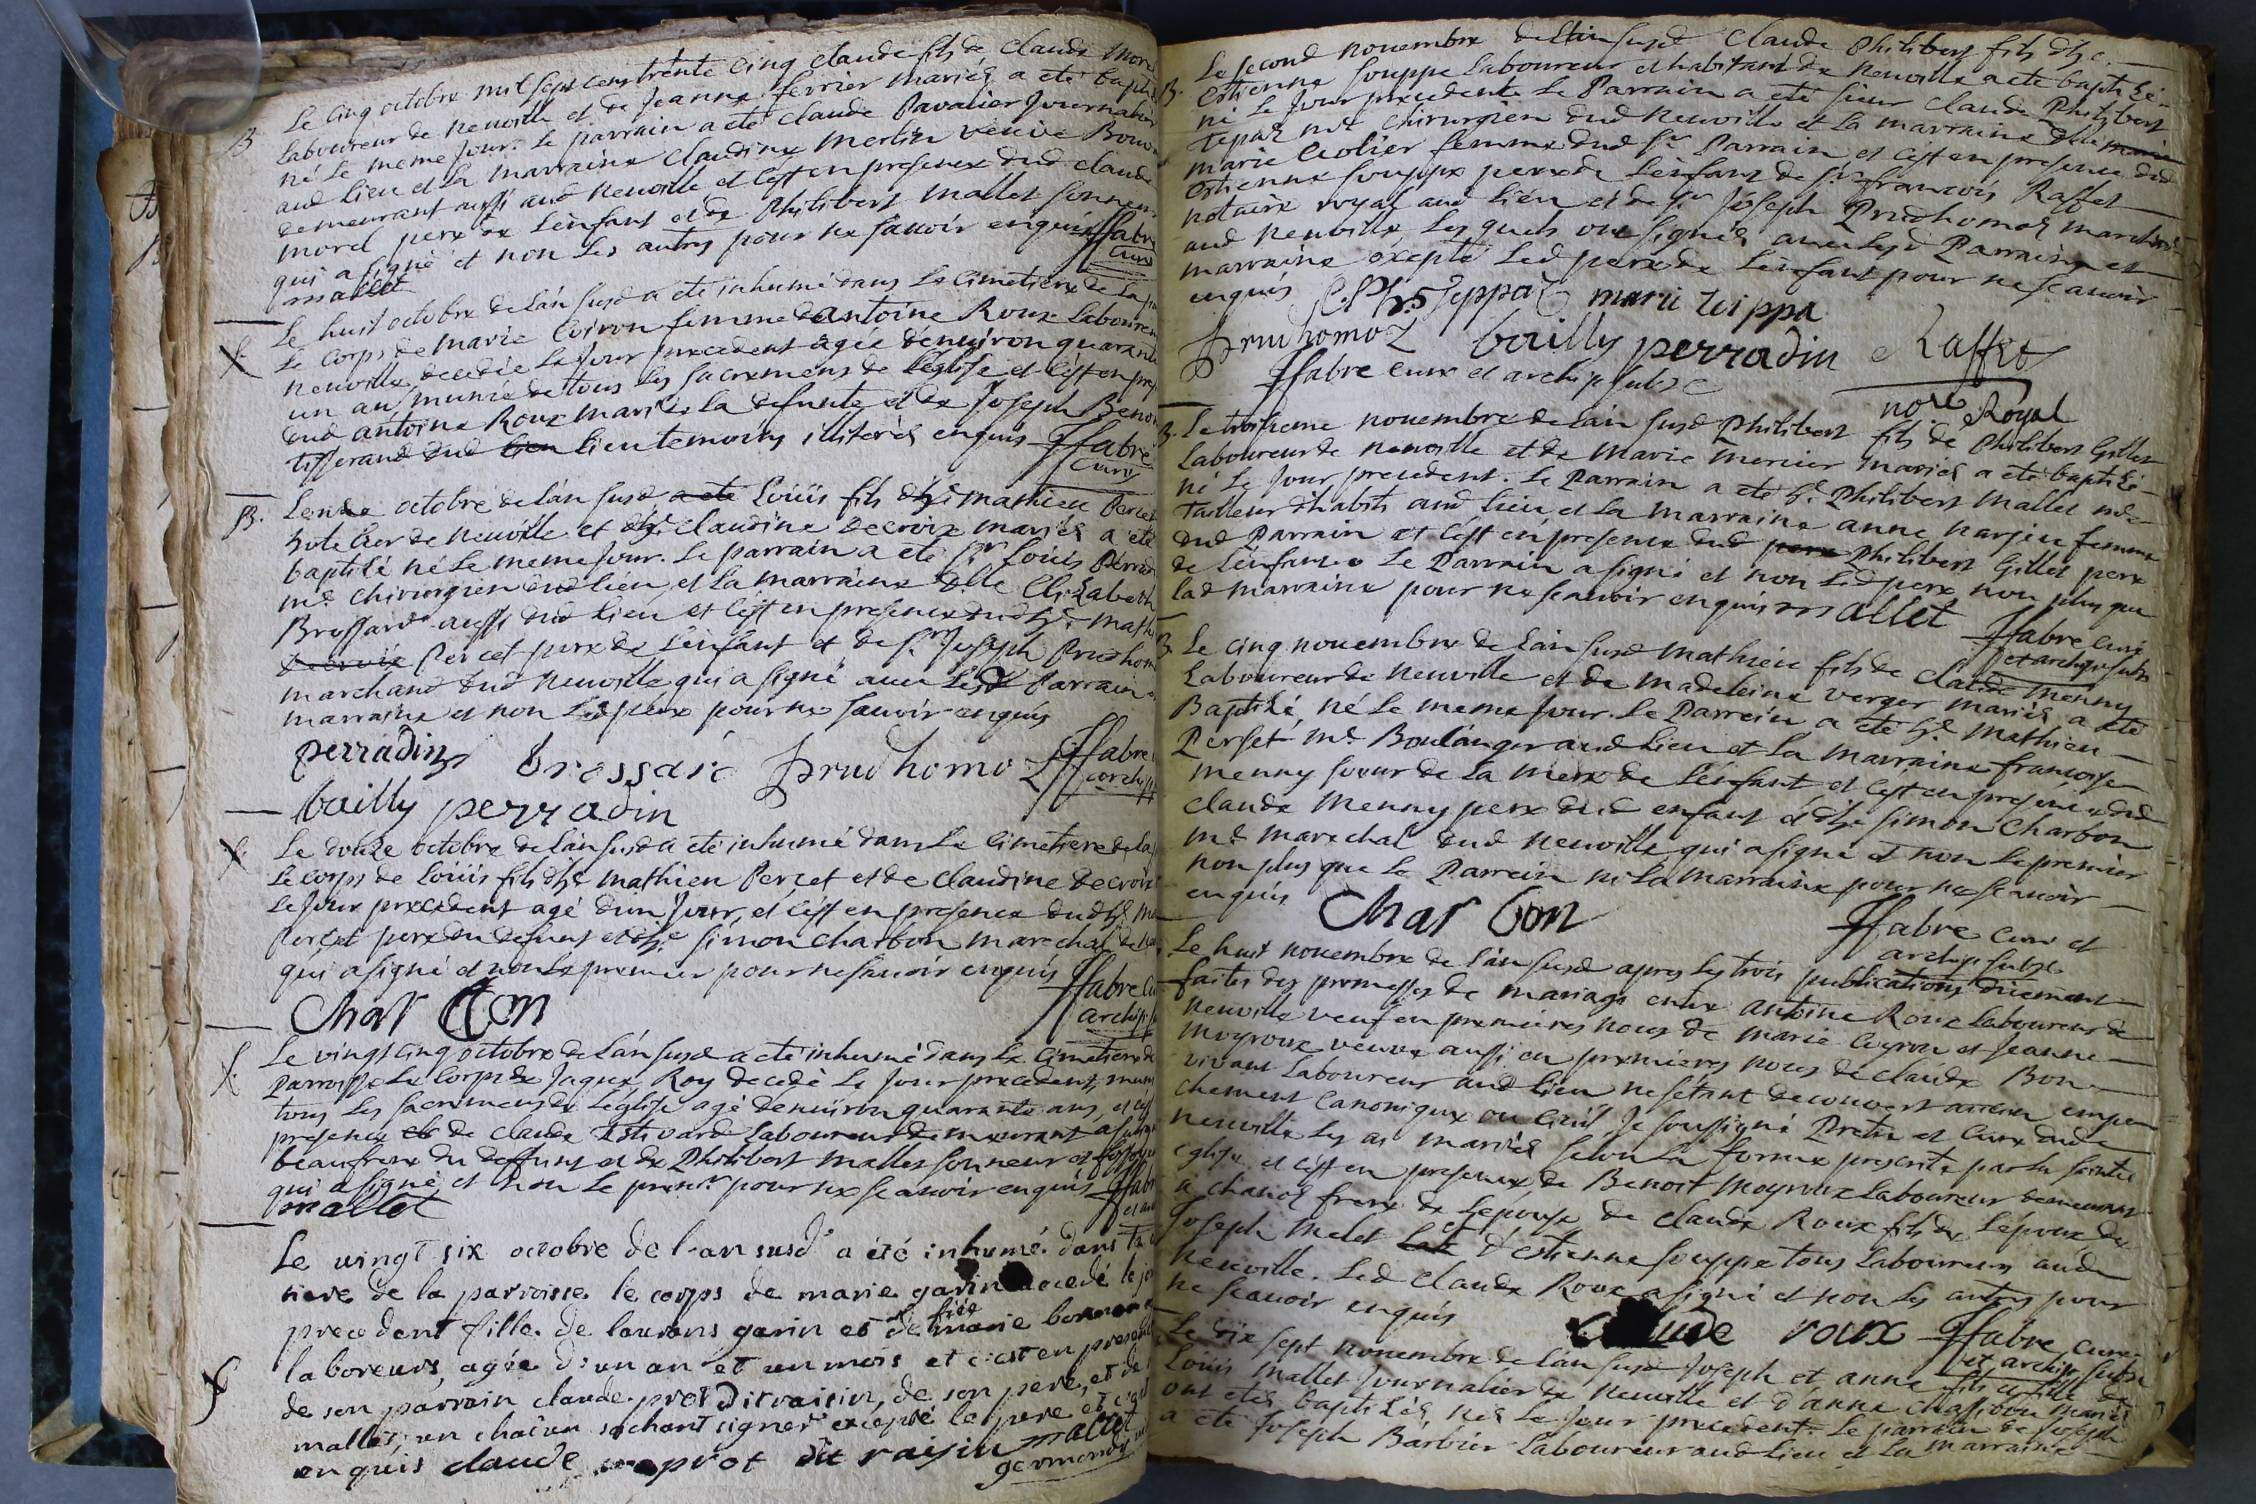 B
Le cinq octobre mil sept cens trente cinq claude fils de claude more
laboureur de neuville et de Jeanne fevrier mariés a eté baptisé
né le meme jour. Le parrain a eté claude Pavalier Journalier
aud lieu et la marraine claudine merlin veuve Bouv
demeurant aussi aud neuville et c'est en presence dud claude
morel pere de l'enfant et de Philibert mallet sonneur
qui a signé et non les autres pour ne scavoir enquis ffabre
mallet curé
Le huit octobre de l'an susd a eté inhumé dans le cimetiere de la
le corps de marie Coiron femme de antoine Roux laboureur
neuville decedée le jour precedent agée d'environ quarante
un an munie de tous les sacremens de l'eglise et c'est en pres
dud antoine Roux mary de la defunte et de Joseph Benoi
tisserand dud lieu temoins illiterés enquis ffabre
curé
B. L'onze octobre de l'an susd a eté Loüis fils d'h.e mathieu Percet
hotelier de neuville et d'h.e claudine decroix mariés a eté
baptisé né le meme jour. Le parrain a eté s.r Loüis Perra
m.e chirurgien dud lieu et la marraine d.lle Elizabeth
Brossard aussi dud lieu et c'est en presence dud h.e math
decroix Percet pere de l'enfant et de s.r Joseph Prudhom
marchand dud neuville qui a signé avec lesd Parrain
marraine et non led pere pour ne scavoir enquis
perradin brossard prudhomoz ffabre
bailly perradin archip
Le douze octobre de l'an susd a eté inhumé dans le cimetiere de la
le corps de Loüis fils d'h.e mathieu Percet et de claudine decroix
le jour precedent agé d'un jour, et c'est en presence dud h.e
Percet pere du defunt et d'h.e simon charbon marechal de
qui a signé et non le premier pour ne scavoir enquis ffabre
Char Bon archip
Le vingt cinq octobre de l'an susd a eté inhumé dans le cimetiere de
Parroisse le corps de Jaques Roy decedé le jour precedent, muni
tous les sacremens de l'eglise agé d'environ quarante ans, et c'est
presence de claude Estivard laboureur demeurant a
beaufrere du deffunt et de Philibert mallet sonneur et
qui a signé et non le prem.r pour ne scavoir enquis ffabr
mallet
Le vingt six octobre de l'an susd' a été inhumé dans
tiere de la parroisse le corps de marie garin decedé le jo
precedent fille de laurens garin et de marie
laboreurs, agée d'un an et un mois et c'est en presen
de son parrain claude prot dit raisin, de son pere, et de
mallet, un chacun sachant signer excepté le pere
enquis claude prot dit raisin mallet
germain
B. Le second novembre de l'an susd Claude Philibert fils d'h.e
Estienne souppe laboureur et habitant de neuville a eté baptisé
né le jour precedent. Le Parrain a eté sieur claude Philibert
m.e chirurgien dud neuville et la marraine d.lle
marie femme dud s.r Parrain et c'est en presence dud
Estienne souppe pere de l'enfant de s.r francois Raffet
notaire royal aud lieu et de s.r Joseph Prudhomoz marchand
aud neuville lesquels ont signés avec lesd Parrain et
marraine éxepté led pere de l'enfant pour ne scavoir
enquis
Prudhomoz bailly perradin Raffet
ffabre curé et archip subst no.re Royal
B. Le troisieme novembre de l'an susd Philibert fils de Philibert Gillet
laboureur de neuville et de marie mercier mariés a eté baptisé
né le jour precedent. Le Parrain a eté h.e Philibert mallet m.e
Tailleur d'habits aud lieu et la marraine anne narjeu femme
dud Parrain et c'est en presence dud pere Philibert Gillet pere
de l'enfant. Le Parrain a signé et non led pere non plus que
lad marraine pour ne scavoir enquis mallet
ffabre curé
et archip subst
B. Le cinq novembre de l'an susd mathieu fils de claude menny
laboureur de neuville et de madeleine verger mariés a eté
Baptisé, né le meme jour. Le Parrein a eté h.e mathieu
Perset m.e Boulanger aud lieu et la marraine francoise
menny soeur de la mere de l'enfant et c'est en presence dud
claude menny pere dud enfant et d'h.e simon charbon
m.e marechal dud neuville qui a signé et non le premier
non plus que le Parrein ni la marraine pour ne scavoir
enquis Char bon ffabre curé et
archip subst
Le huit novembre de l'an susd apres les trois publications düement
faites des promesses de mariage entre antoine Roux laboureur de
neuville veuf en premieres noces de marie Coyron et Jeanne
moyroux veuve aussi en premieres noces de claude Bon
vivant laboureur aud lieu ne s'etant decouvert aucun empe
chement canonique ou civil Je soussigné Pretre et curé dud
neuville les ai mariés selon la forme prescrite par la sainte
eglise et c'est en presence de Benoit moyroux laboureur demeurant
a chanoz frere de l'epouse de claude Roux fils de l'époux de
Joseph melet et d'estienne souppe tous laboureurs aud
neuville. Led claude Roux a signé et non les autres pour
ne scavoir enquis claude roux ffabre curé
et archip subst
Le dix sept novembre de l'an susd Joseph et anne fils et fille de
Loüis mallet Journalier de neuville et d'anne chassibou mariés
ont etés baptisés, nés le jour precedent. Le parrain de Joseph
a eté Joseph Barbier laboureur aud lieu et la marraine